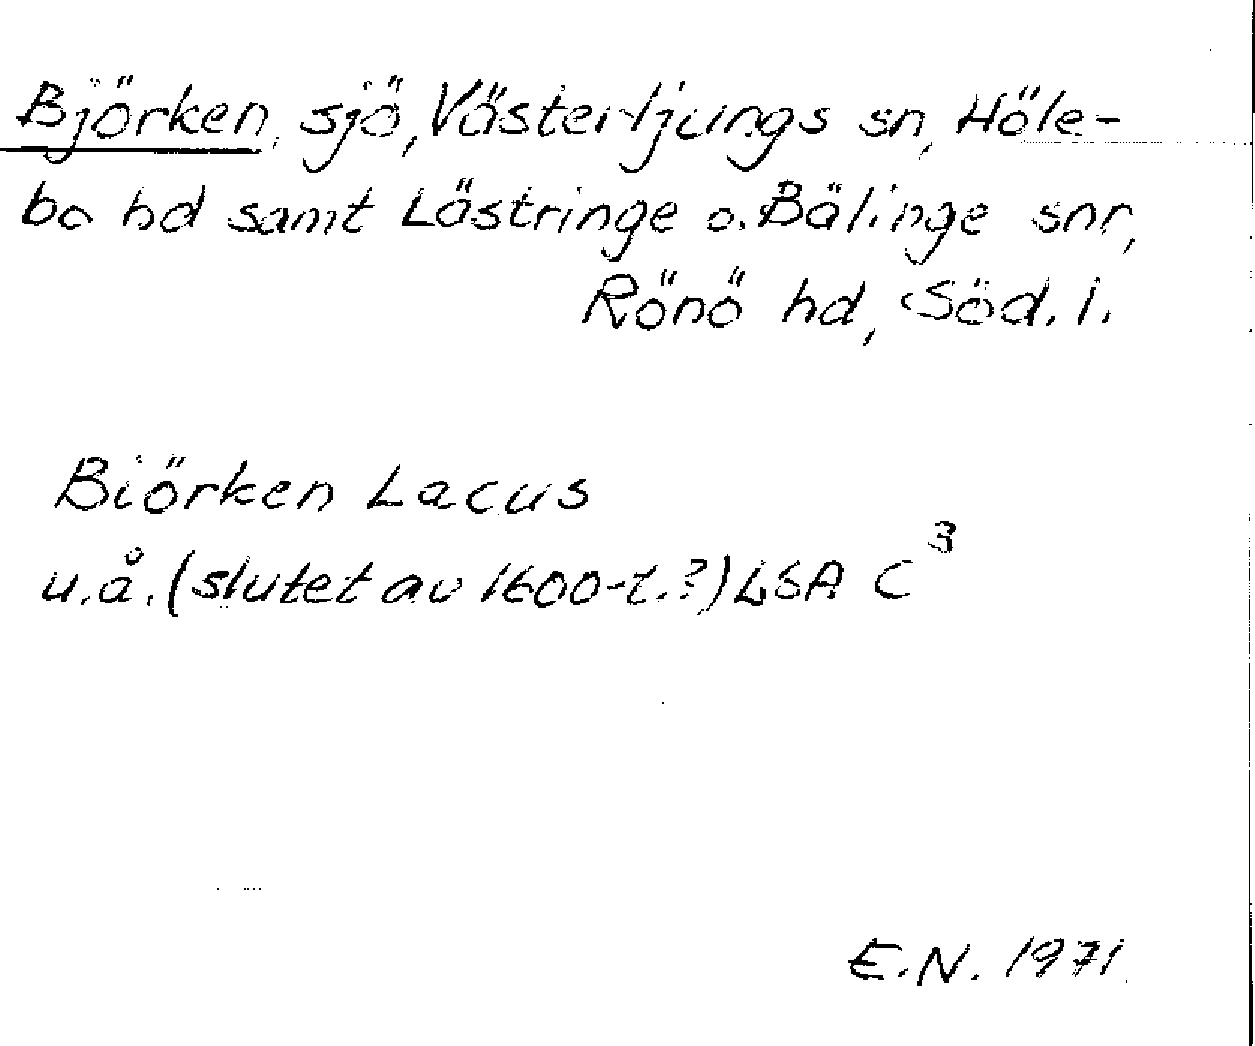 Björken, sjö, Västerljungs sn, Höle-
bo hd samt Lästringe o. Bälinge snr,
Rönö hd, Söd. l.
Biörken Lacus
u.å. (slutet av 1600-t.?) LSA C³
E.N. 1971